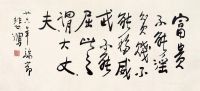 富貴
不能淫
貧賤不
能移威
武不能
屈此之
謂大丈
夫
廿六年
悲鴻